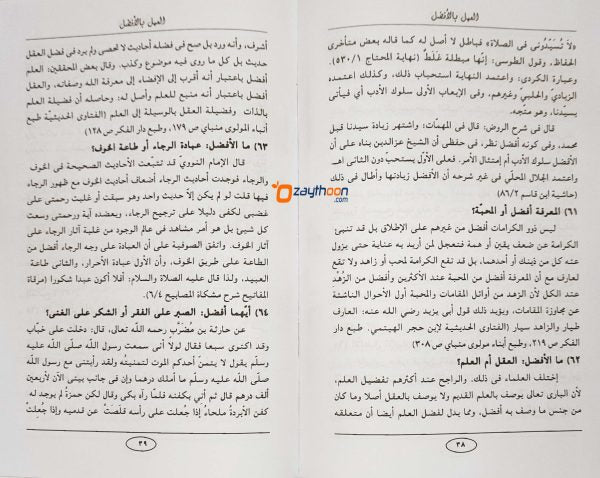 العمل بالأفضل
«لَا تُسَيِّدُونى فى الصلاة» فباطل لا أصل له كما قاله بعض متأخرى
الحفاظ، وقول الطوسى: إنّها مبطلة غَلَطٌ (نهاية المحتاج ٥٣٠/١)
وعبارة الكردى: واعتمد النهاية استحباب ذلك، وكذلك اعتمده
الزيادىّ والحلبىّ وغيرهم، وفى الإيعاب الأولى سلوك الأدب أى فيأتى
بسيّدنا، وهو متّجه.
قال فى شرح الروض: قال فى المهمّات: واشتهر زيادة سيدنا قبل
محمد، وفى كونه أفضل نظر، فى حفظى أن الشيخ عزالدين بناه على أن
الأفضل سلوك الأدب أم إمتثال الأمر. فعلى الأوّل يستحبّ دون الثانى اهـ
واعتمد الجلال المحلّي فى غير شرحه أن الأفضل زيادتها وأطال فى ذلك
(حاشية ابن قاسم ٨٦/٢)
٦١) المعرفة أفضل أو المحبّة؟
ليس ذوو الكرامات أفضل من غيرهم على الإطلاق بل قد تنبئ
الكرامة عن ضعف يقين أو همة فتعجل لمن أريد به عناية حتى يزول
عنه كل من ذينك أو أحدهما، بل قد تقع الكرامة لمحب أو زاهد ولا تقع
لعارف مع أن المعرفة أفضل من المحبة عند الأكثرين وأفضل من الزُهْد
عند الكل لأن الزهد من أوائل المقامات والمحبة أول الأحوال الناشئة
عن مجاوزة المقامات، ويؤيد ذلك قول أبى يزيد رضي الله عنه: العارف
طيار والزاهد سيار (الفتاوى الحديثية لإبن حجر الهيتمى، طبع دار
الفكر ص ٢١٩، وطبع أبناء مولوى منباي ص ٣٠٨)
٦٢) ما الأفضل: العقل أم العلم؟
إختلف العلماء فى ذلك. والراجح عند أكثرهم تفضيل العلم،
لأن البارى تعالى يوصف بالعلم القديم ولا يوصف بالعقل أصلا وما كان
من جنس ما وصف به أفضل، ومما يدل لفضل العلم أيضا أن متعلقه
٣٨
العمل بالأفضل
أشرف، وأنه ورد بل صح فى فضله أحاديث لا تحصى ولم يرد فى فضل العقل
حديث بل كل ما روى فيه موضوع وكذب. وقال بعض المحققين: العلم
أفضل باعتبار أنه أقرب إلى الإفضاء إلى معرفة الله وصفاته، والعقل
أفضل باعتبار أنه منبع للعلم وأصل له؛ وحاصله أن فضيلة العلم
بالذات وفضيلة العقل بالوسيلة إلى العلم (الفتاوى الحديثيّة طبع
أبناء المولوى منباي ص ١٧٩، وطبع دار الفكر ص ١٢٨)
٦٣) ما الأفضل: عبادة الرجاء أو طاعة الخوف؟
قال الإمام النووىّ قد تتبّعت الأحاديث الصحيحة فى الخوف
والرجاء فوجدت أحاديث الرجاء أضعاف أحاديث الخوف مع ظهور الرجاء
فيها قلت لو لم يكن إلّا حديث واحد وهو سبقت أو غلبت رحمتى على
غضبى لكفى دليلا على ترجيح الرجاء، ويعضده آية ورحمتى وسعت
كل شيئ بل هو أمر مشاهد فى عالم الوجود من غلبة آثار الرجاء على
آثار الخوف. واتفق الصوفية على أن العبادة على وجه الرجاء أفضل من
الطاعة على طريق الخوف، وأن الأول عبادة الأحرار، والثانى طاعة
العبيد، ولذا قال عليه الصلاة والسلام: أفلا أكون عبدا شكورا (مرقاة
المفاتيح شرح مشكاة المصابيح ٦/٤)
٦٤) أيّهما أفضل: الصبر على الفقر أو الشكر على الغنى؟
عن حارثة بن مُضَرِّب رحمه الله تعالى، قال: دخلت على خبّاب
وقد اكتوى سبعا فقال لولا أنى سمعت رسول الله صلّى الله عليه
وسلّم يقول لا يتمنّ أحدكم الموت لتمنيته ولقد رأيتنى مع رسول الله
صلّى الله عليه وسلّم ما أملك درهما وإن فى جانب بيتى الآن لأربعين
ألف درهم قال ثم أتي بكفنه فلمّا رآه بكى وقال لكن حمزة لم يوجد له
كفن الابردة ملحاء إذا جُعلت على رأسه قلصتْ عن قدميه وإذا جُعِلتْ
٣٩
Ozaythoon
.com